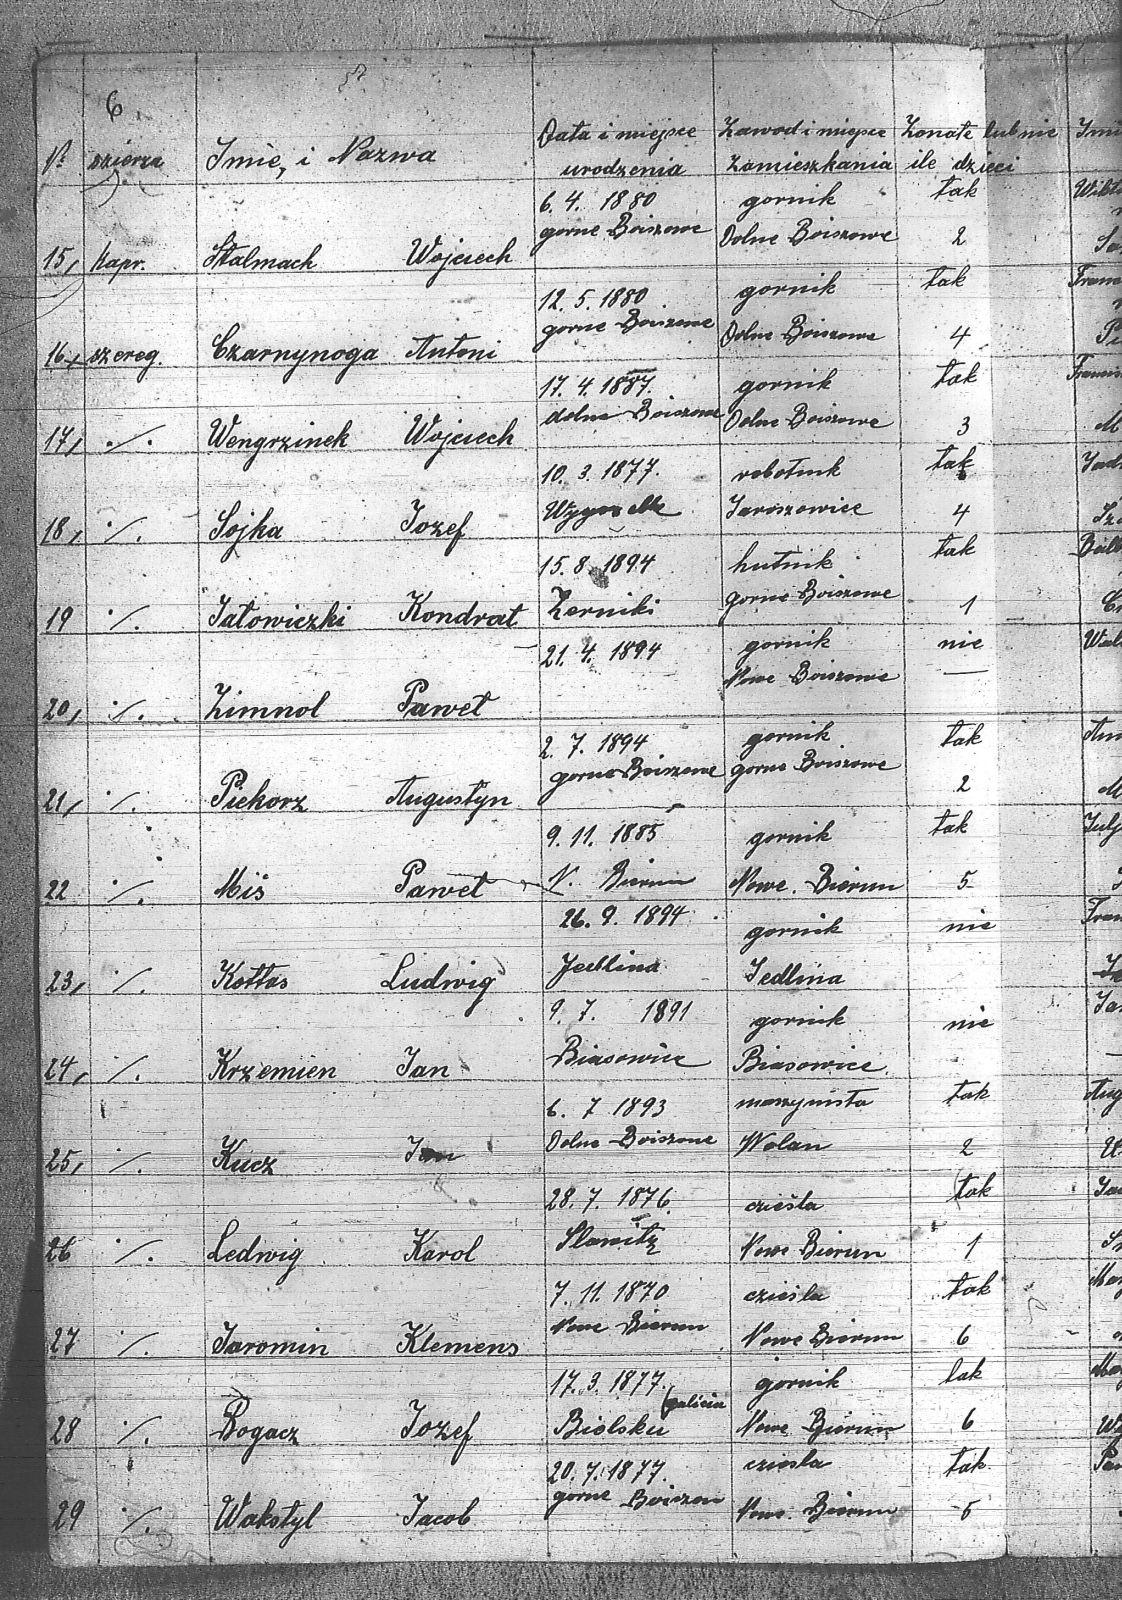 6
Nr dzierza Imie, i Nazwa Data i miejsce urodzenia Zawod i miejsce Zamieszkania Zonate lub nie ile dzieci Imi
6. 4. 1880 gornik tak Wikt
gorne Boiszowe Dolne Boiszowe 2
15, Kapr. Stalmach Wojciech
12. 5. 1880 gornik tak Franc
gorne Boiszowe Dolne Boiszowe 4
16+ szereg. Czarnynoga Antoni
17. 4. 1887. gornik tak Francis
dolne Boiszowe Dolne Boiszowe 3 M
17, ·/. Wengrzinek Wojciech
10. 3. 1877. robotnik tak Jad
Jaroszowice 4
18, ·/. Sojka Jozef
15. 8. 1894 hutnik tak
Zerniki gorne Boiszowe 1
19 ·/. Jatowiczki Kondrat
21. 4. 1894 gornik nie Wal
Nowe Boiszowe —
20, ·/. Zimnol Pawet
2. 7. 1894 gornik tak
gorne Boiszowe gorne Boiszowe 2 M
21, ·/. Piekorz Augustyn
9. 11. 1885 gornik tak Julj
N. Bierun Nowe. Bierun 5
22 ·/. Miś Pawet
26. 9. 1894 gornik nie Fran
Jedlina Jedlina
23, ·/. Kottas Ludwig
9. 7. 1891 gornik nie
Biasowice Biasowice.
24, ·/. Krzemien Jan
6. 7 1893 maszynista tak Aug
Dolne Boiszowe Wolan 2
25, ·/. Kucz Jan
28. 7. 1876. cieśla tak
Slawitz Nowe Bierun 1
26 ·/. Ledwig Karol
7. 11. 1870 cziesla tak
Nowe Bierun Nowe Bierun 6
27 ·/. Jaromin Klemens
17. 3. 1877. gornik tak
Bielsku (galicia Nowe Bierun 6
28 ·/. Rogacz Jozef
20. 7. 1877. cziesla tak
gorne Boiszow Nowe. Bierun 5
29 ·/. Wakstyl Jacob